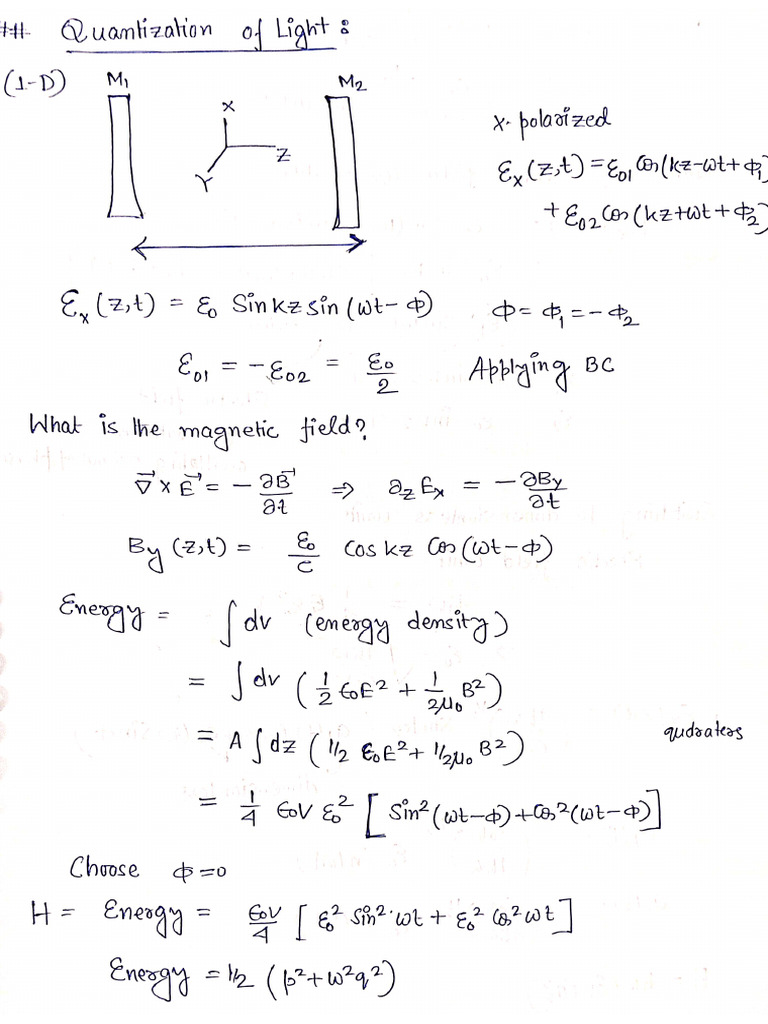 ## Quantization of Light:
(1-D) M₁ M₂
X
Z
Y
X-polarized
Ɛₓ(z,t) = Ɛ₀₁ Cos(kz-ωt+Φ₁)
+ Ɛ₀₂ Cos(kz+ωt+Φ₂)
Ɛₓ(z,t) = Ɛ₀ Sinkz sin(ωt-Φ) Φ = Φ₁ = -Φ₂
Ɛ₀₁ = -Ɛ₀₂ = Ɛ₀/2 Applying BC
What is the magnetic field?
∇⃗ × E⃗ = - ∂B⃗/∂t ⇒ ∂zEₓ = - ∂By/∂t
By(z,t) = Ɛ₀/c Coskz Cos(ωt-Φ)
Energy = ∫dv (energy density)
= ∫dv (1/2 ϵ₀E² + 1/2μ₀ B²)
= A∫dz (1/2 ϵ₀E² + 1/2μ₀ B²) qudraters
= 1/4 ϵ₀V Ɛ₀² [Sin²(ωt-Φ)+Cos²(ωt-Φ)]
Choose Φ=0
H = Energy = ϵ₀V/4 [Ɛ₀² Sin²ωt + Ɛ₀² Cos²ωt]
Energy = 1/2 (p²+ω²q²)